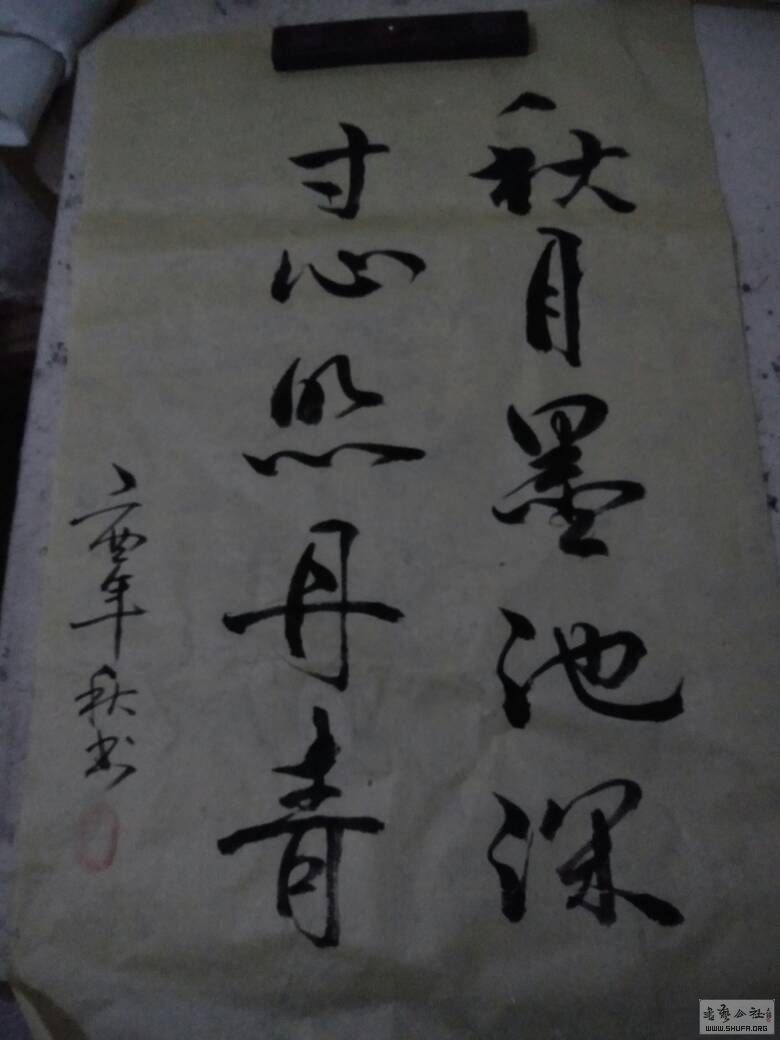 秋月墨池深
寸心照丹青
酉年秋书
书艺公社
WWW.SHUFA.ORG